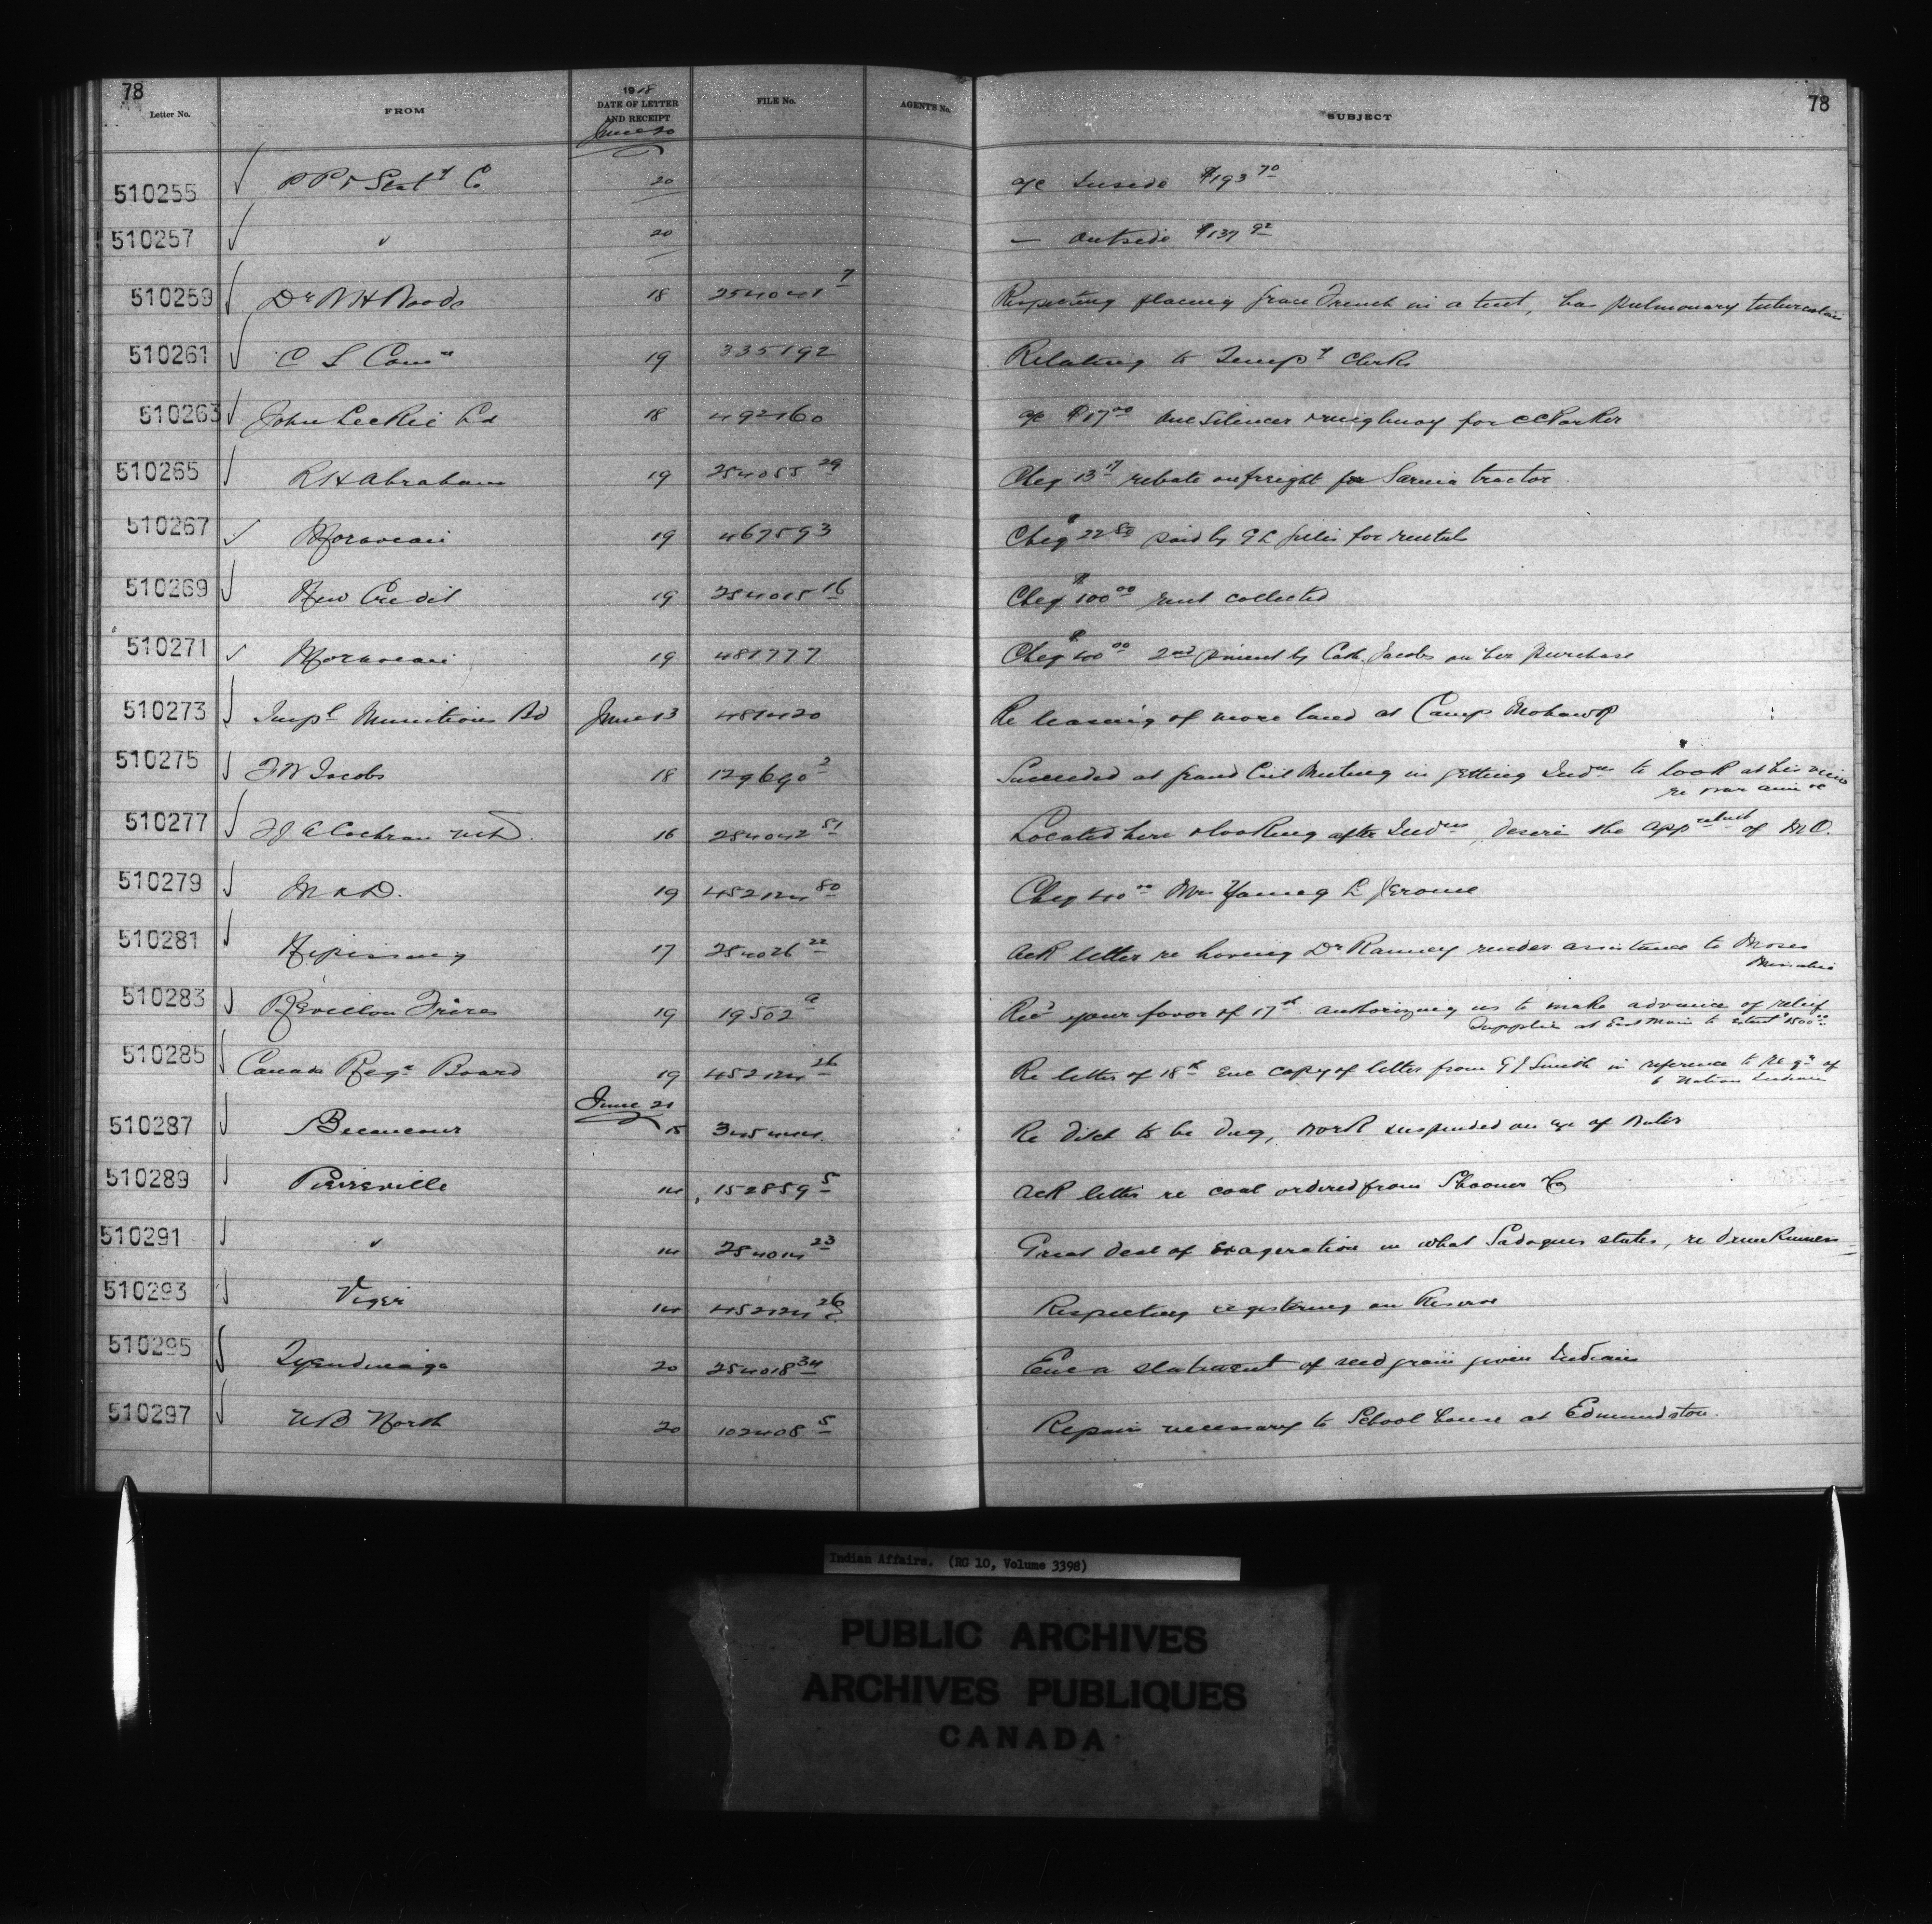 78
78
Letter No.
FROM
1918
DATE OF LETTER
AND RECEIPT
FILE No.
AGENT'S No.
SUBJECT
June 20
510255 P P & Staty Co 20 a/c Inside $193 70
510257 " 20 — Outside $137 92
510259 Dr W H Woods 18 254041 7 Respecting placing French in a tent, has pulmonary tuberculosis
510261 C S Comn 19 335192 Relating to Tempy Clerks
510263 John Leckie Ld 18 492160 a/c $17 00 one Silencer for CC Parker
510265 R H Abraham 19 254055 29 Cheq 13 17 rebate on freight for Sarnia tractor
510267 Moravian 19 467593 Cheq $22 50 paid by for rentals
510269 New Credit 19 254015 16 Cheq $100 00 rent collected
510271 Moravian 19 481777 Cheq $100 00 2nd by Cath. Jacobs on her purchase
510273 Impl Munitions Bd June 13 481420 Re leasing of more land at Camp Mohawk
510275 F W Jacobs 18 129690 2 Succeeded at Grand Meeting in getting Indns to look at his view
re war
510277 Cochran 16 254042 51 Located here & looking after Indns, desire the of M O.
510279 M & D. 19 452124 80 Cheq 40 00 L Jerome
510281 Nipissing 17 254026 22 Ack letter re having Dr Ranney render assistance to Moses
510283 Revillon Freres 19 19502 a Recd your favor of 17th authorizing us to make advance of relief
Supplies at East Main to extent $1500 00
510285 Canada Regn Board 19 452124 26 Re letter of 18th Enc copy of letter from G J Smith in reference to regn of
6 Nation Indians
June 21
510287 Becancour 15 345444 Re ditch to be dug, work suspended on a/c of water
510289 Pierreville 14 152859 5 Ack letter re coal ordered from Shooner Co
510291 " 14 254014 23 Great deal of exageration in what states, re drunkenness
510293 Viger 14 452124 26 Respecting registering on Reserve
510295 Tyendinaga 20 254018 34 Enc a statement of seed grain given Indians
510297 N B North 20 102408 5 Repairs necessary to School house at Edmundston.
Indian Affairs. (RG 10, Volume 3398)
PUBLIC ARCHIVES
ARCHIVES PUBLIQUES
CANADA